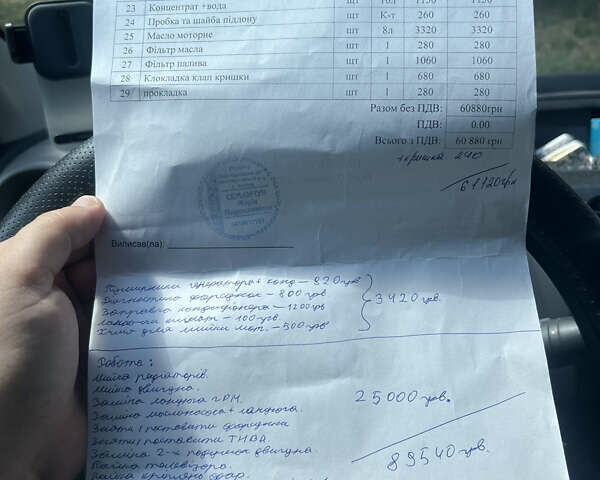 23 Концентрат +вода шт 10л 1150 1150
24 Пробка та шайба піддону шт К-т 260 260
25 Масло моторне шт 8л 3320 3320
26 Фільтр масла шт 1 280 280
27 Фільтр палива шт 1 1060 1060
28 Клокладка клап кришки шт 1 680 680
29 прокладка шт 1 280 280
Разом без ПДВ: 60880грн
ПДВ: 0.00
Всього з ПДВ: 60 880 грн
+кришка 240
61120грн
Виписав(ла):
Підшипники генератора + конд — 820грн
Діагностика форсунок — 800 грв
Заправка кондиціонера — 1200грв
— 100 грв.
Хімія для мийки мот. — 500грв
3420 грв.
Робота:
Мийка радіаторів.
Мийка двигуна.
Заміна ланцюга ГРМ.
25000грв.
Заміна маслонасоса + ланцюга.
Зняти і поставити форсунки
Зняти і поставити ТНВД
Заміна 2-х подушок двигуна.
89540грв.
Пайка телевізора.